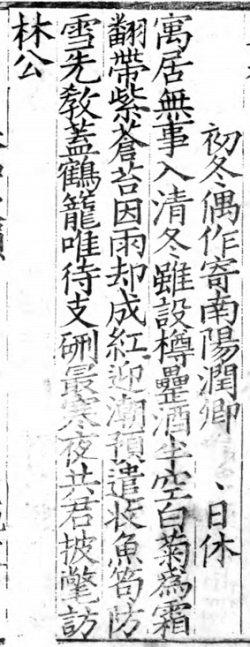 初冬偶作寄南陽潤卿　、日休
寓居無事入清冬雖設樽罍酒半空白菊為霜
翻帶紫蒼苔因雨却成紅迎潮預遣收魚笱防
雪先敎蓋鶴籠唯待支硎最寒夜共君披氅訪
林公